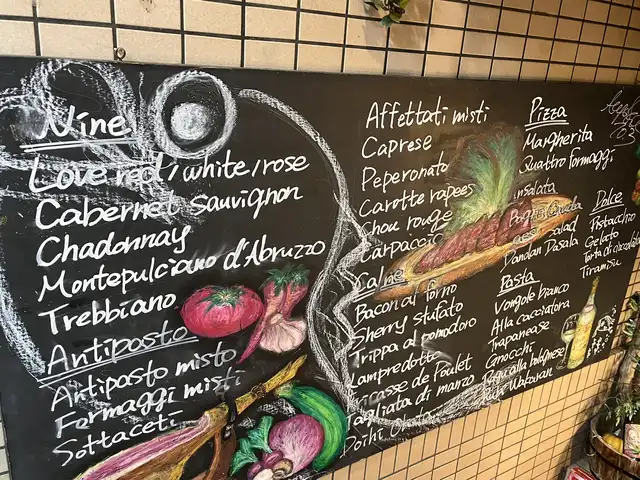 Nine
Love red/white/rose
Cabernet sauvignon
Chadonnay
Montepulciano d'Abruzzo
Trebbiano
Antiposto
Antiposto misto
Formaggi misti
Sottaceti
Affettati misti
Caprese
Peperonato
Carotte rapees
chou rouge
Carpaccio
Calne
Bacon al forno
Sherry stufato
Trippa al pomodoro
Lampredotto
Fricasse de Poulet
Tagliata di manzo
Pizza
Margherita
Quattro formaggi
insalata
salad
Pasta
Vongole bianco
Alla cacciatora
Trapanese
Gnocchi
Dolce
Pistacchio
Gelato
Torta di cioccolato
Tiramisu